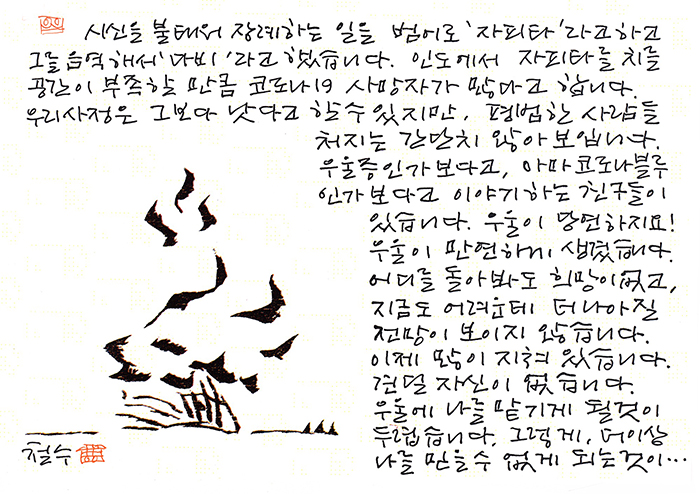 시신을 불태워 장례하는 일을 범어로 '자피타'라고하고
그를 음역해서 '다비'라고 했습니다. 인도에서 자피타를 치를
공간이 부족할 만큼 코로나19 사망자가 많다고 합니다.
우리사정은 그보다 낫다고 할 수 있지만, 평범한 사람들
처지는 간단치 않아 보입니다.
우울증인가보다고, 아마 코로나블루
인가보다고 이야기하는 친구들이
있습니다. 우울이 당연하지요!
우울이 만연하게 생겼습니다.
어디를 돌아봐도 희망이 없고,
지금도 어려운데 더 나아질
전망이 보이지 않습니다.
이제 많이 지쳐 있습니다.
견딜 자신이 없습니다.
우울에 나를 맡기게 될것이
두렵습니다. 그렇게, 더이상
나를 믿을 수 없게 되는것이…
철수